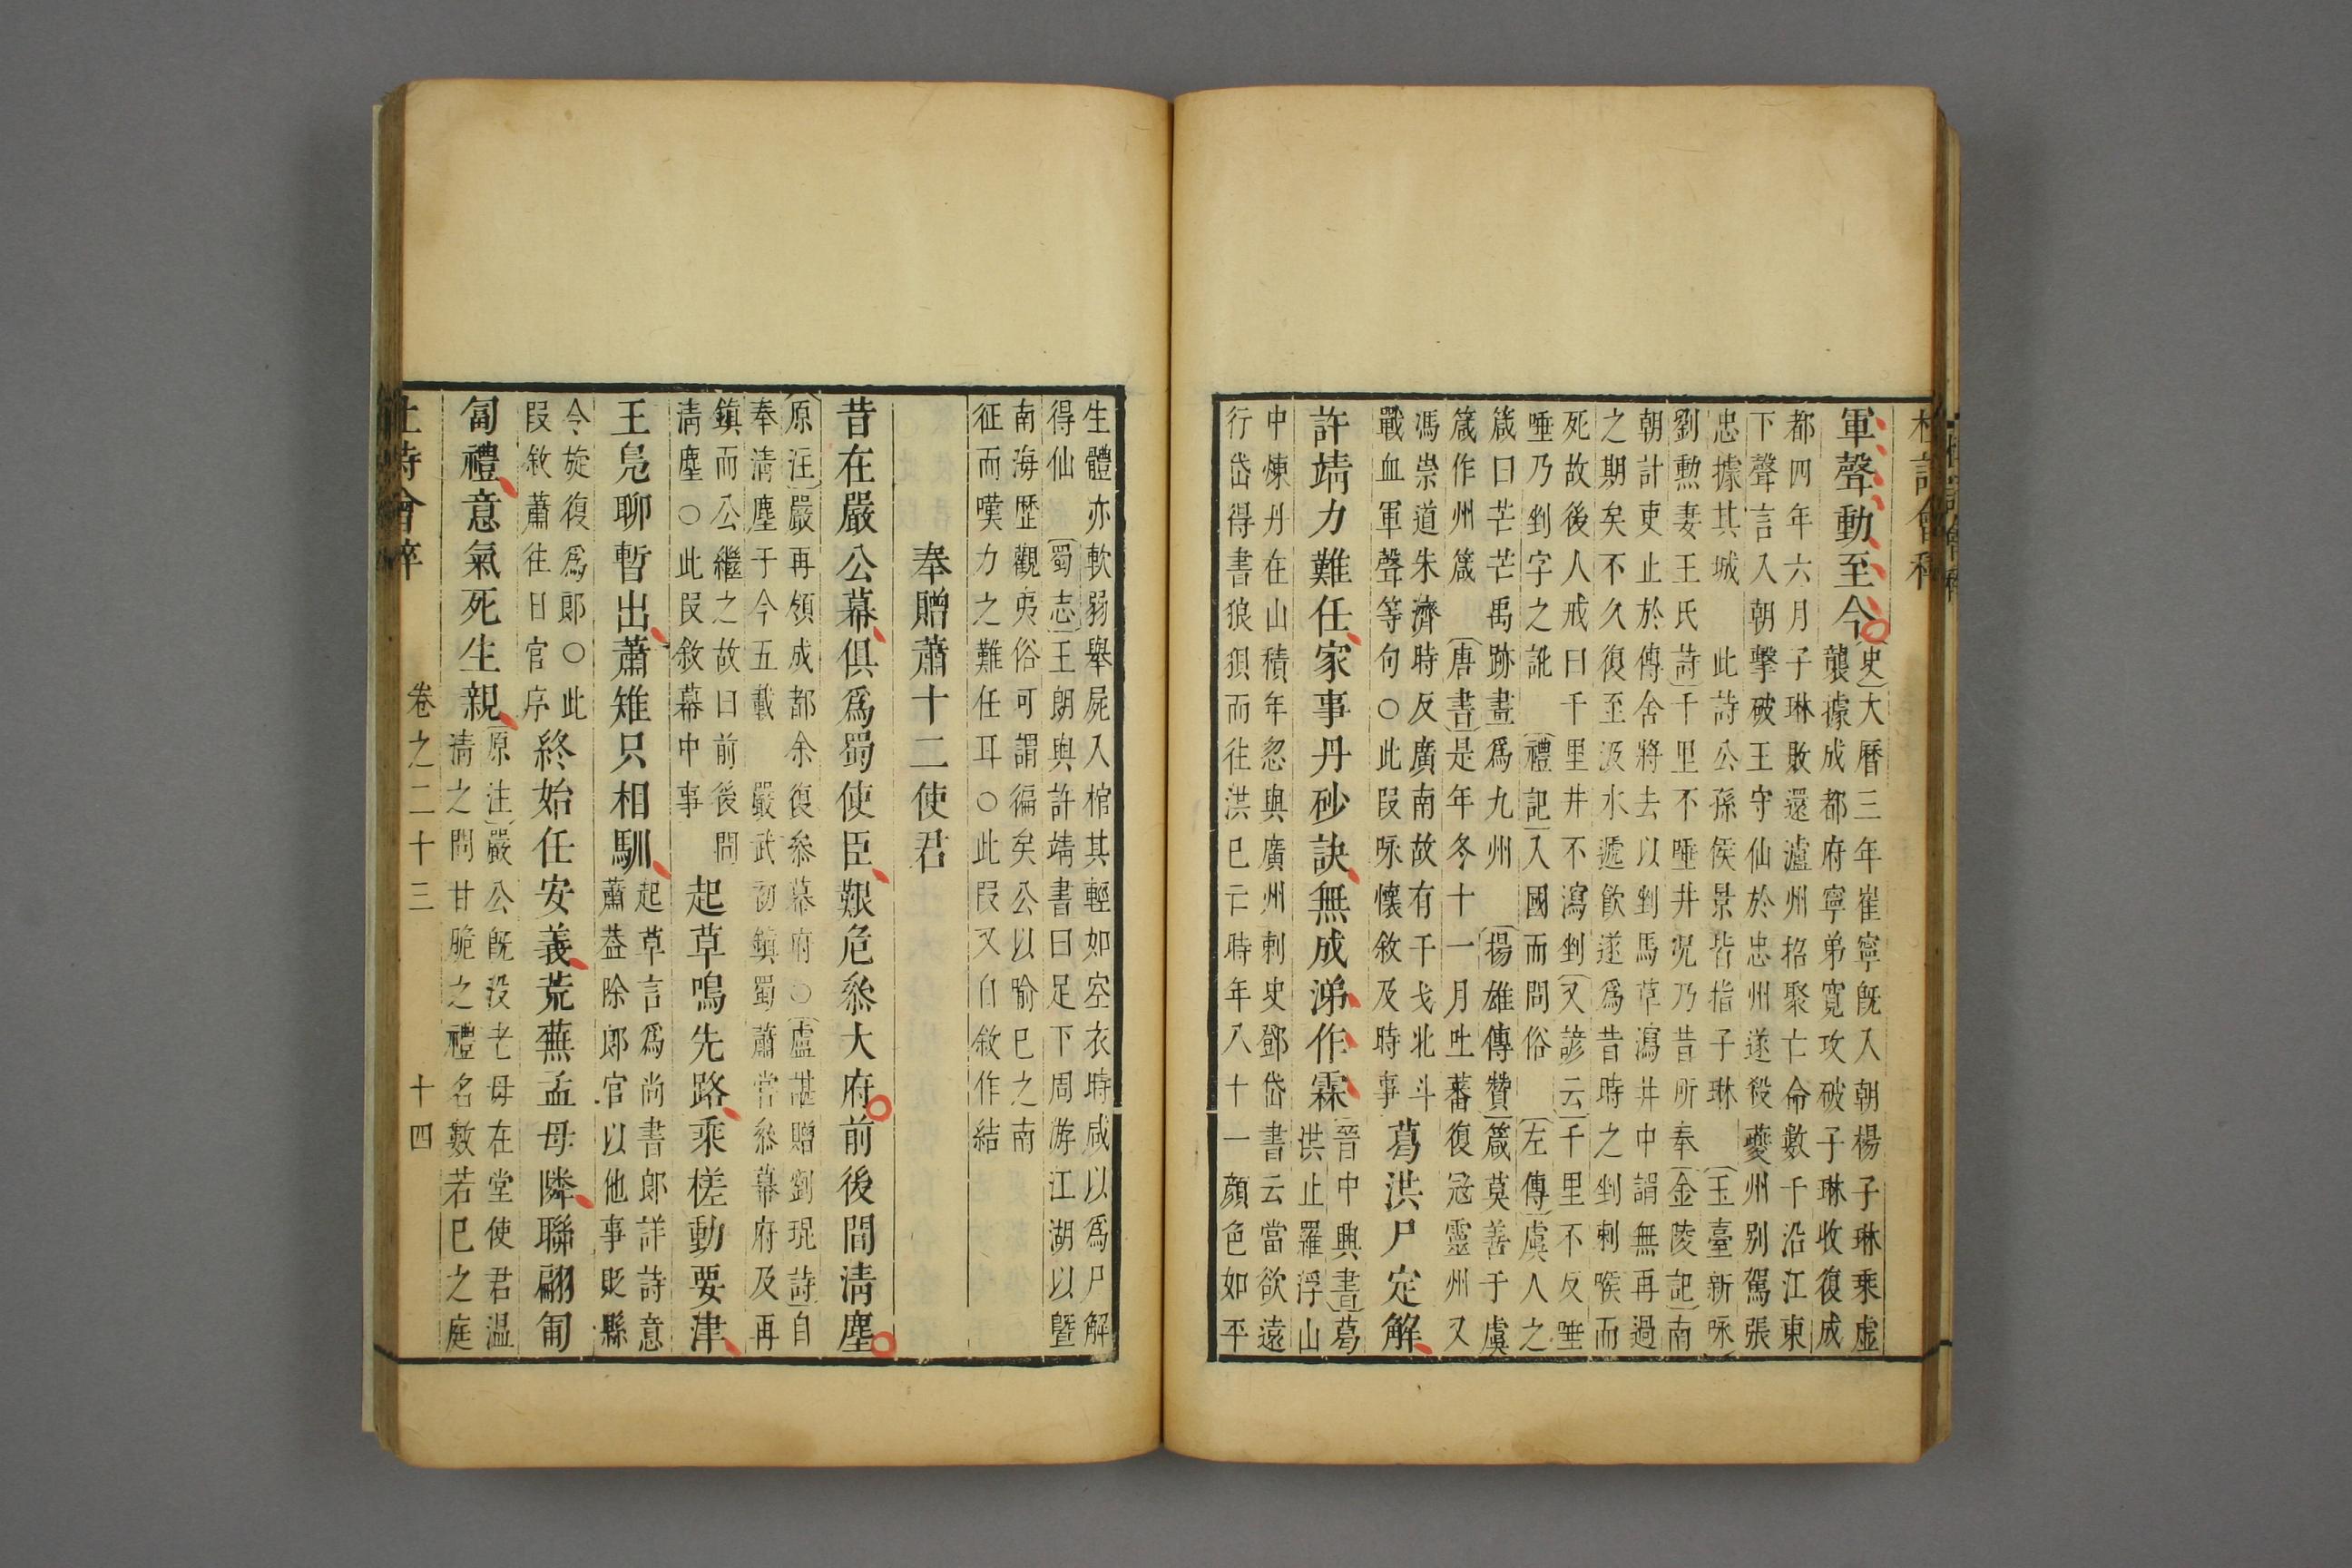 杜詩會稡
軍聲動至今
〔史〕大曆三年崔寧旣入朝楊子琳乘虛
襲據成都府寧弟寬攻破子琳收復成
都四年六月子琳敗還瀘州招聚亡命數千沿江東
下聲言入朝擊破王守仙於忠州遂役夔州別駕張
忠據其城 此詩公孫侯景皆指子琳 〔玉臺新咏〕
劉勲妻王氏詩〕千里不唾井况乃昔所奉〔金陵記〕南
朝計吏止於傳舍將去以剉馬草瀉井中謂無再過
之期矣不久復至汲水遞飲遂爲昔時之剉刺喉而
死故後人戒曰千里井不瀉剉〔又諺云〕千里不反唾
唾乃剉字之訛 〔禮記〕入國而問俗 〔左傳〕虞人之
箴曰芒芒禹跡畫爲九州 〔揚雄傳贊〕箴莫善于虞
箴作州箴 〔唐書〕是年冬十一月吐蕃復冦靈州又
馮崇道朱濟時反廣南故有干戈北斗
戰血軍聲等句○此叚咏懷敘及時事
葛洪尸定解
許靖力難任家事丹砂訣無成涕作霖
〔晉中興書〕葛
洪止羅浮山
中煉丹在山積年忽與廣州刺史鄧岱書云當欲遠
行岱得書狼狽而往洪已亡時年八十一顔色如平
生體亦軟弱舉屍入棺其輕如空衣時咸以爲尸解
得仙 〔蜀志〕王朗與許靖書曰足下周游江湖以曁
南海歷觀夷俗可謂徧矣公以喻已之南
征而嘆力之難任耳○此叚又自敘作結
奉贈蕭十二使君
昔在嚴公幕俱爲蜀使臣艱危叅大府前後間淸塵
〔原注〕嚴再領成都余復叅幕府○〔盧諶贈劉琨詩〕自
奉淸塵于今五載 嚴武初鎮蜀蕭嘗叅幕府及再
鎮而公繼之故曰前後間
淸塵○此叚敘幕中事
起草鳴先路乘槎動要津
王鳧聊暫出蕭雉只相馴
起草言爲尚書郎詳詩意
蕭葢除郎官以他事貶縣
今旋復爲郎○此
叚敘蕭往日官序
終始任安義荒蕪孟母隣聯翩匍
匐禮意氣死生親
〔原注〕嚴公旣没老母在堂使君温
淸之問甘脆之禮名數若巳之庭
杜詩會稡
卷之二十三
十四